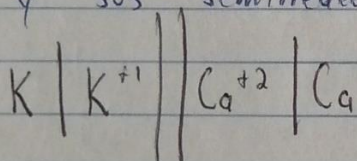 K | K⁺¹ || Ca⁺² | Ca